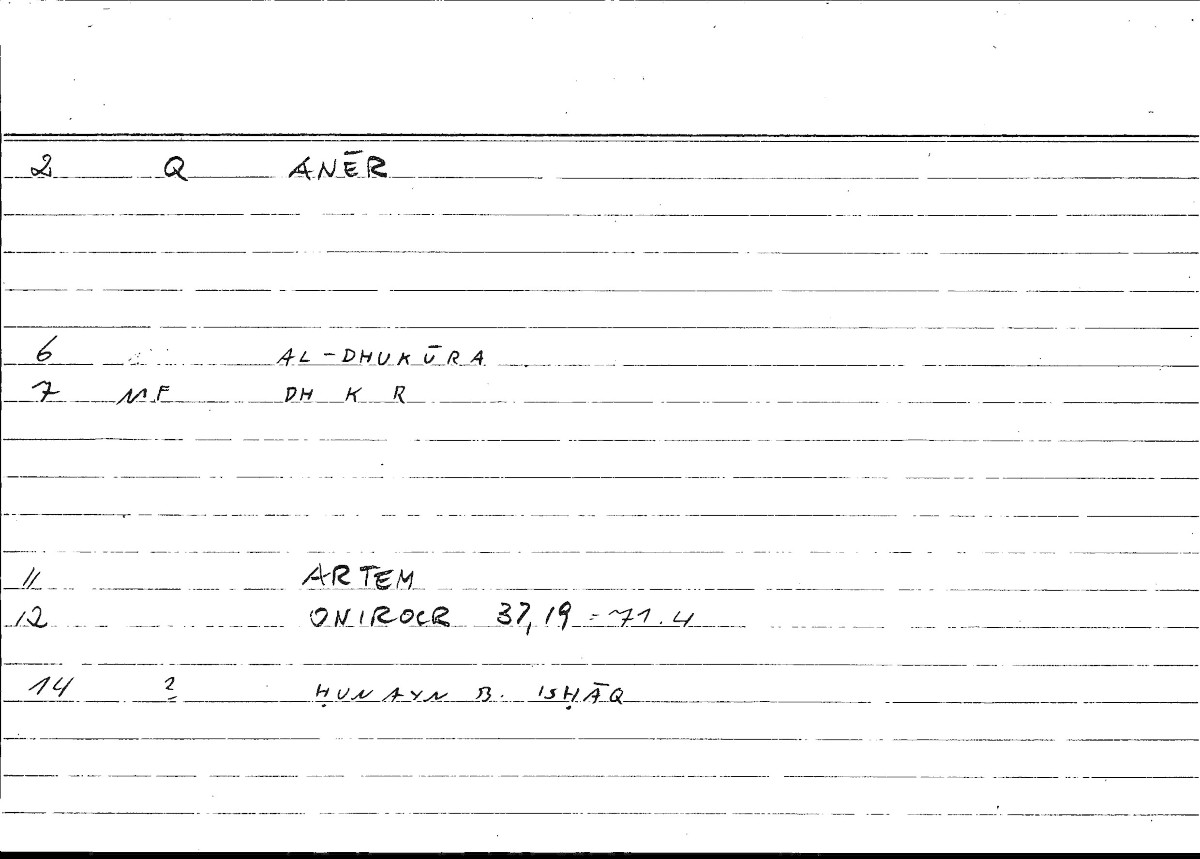 2 Q ANĒR
6 AL-DHUKŪRA
7 MF DH K R
11 ARTEM
12 ONIROCR 37,19 = 71.4
14 2 ḤUNAYN B. ISḤĀQ